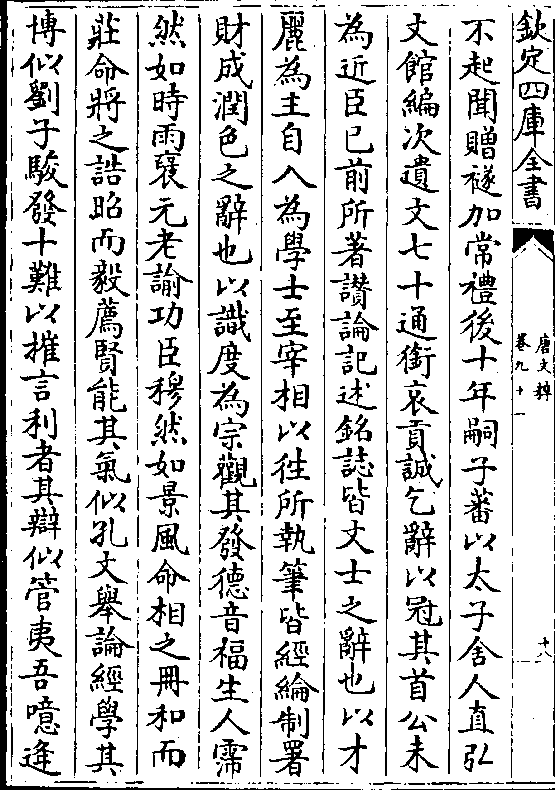 欽定四庫全書
唐文粹
卷九十一
十八
不起聞贈襚加常禮後十年嗣子蕃以太子舍人直弘
文館編次遺文七十通銜哀貢誠乞辭以冠其首公未
為近臣已前所著讚論記述銘誌皆文士之辭也以才
麗為主自入為學士至宰相以往所執筆皆經綸制署
財成潤色之辭也以識度為宗觀其發德音福生人霈
然如時雨襃元老諭功臣穆然如景風命相之冊和而
莊命將之誥昭而毅薦賢能其氣似孔文舉論經學其
博似劉子駿發十難以摧言利者其辯似管夷吾噫逢